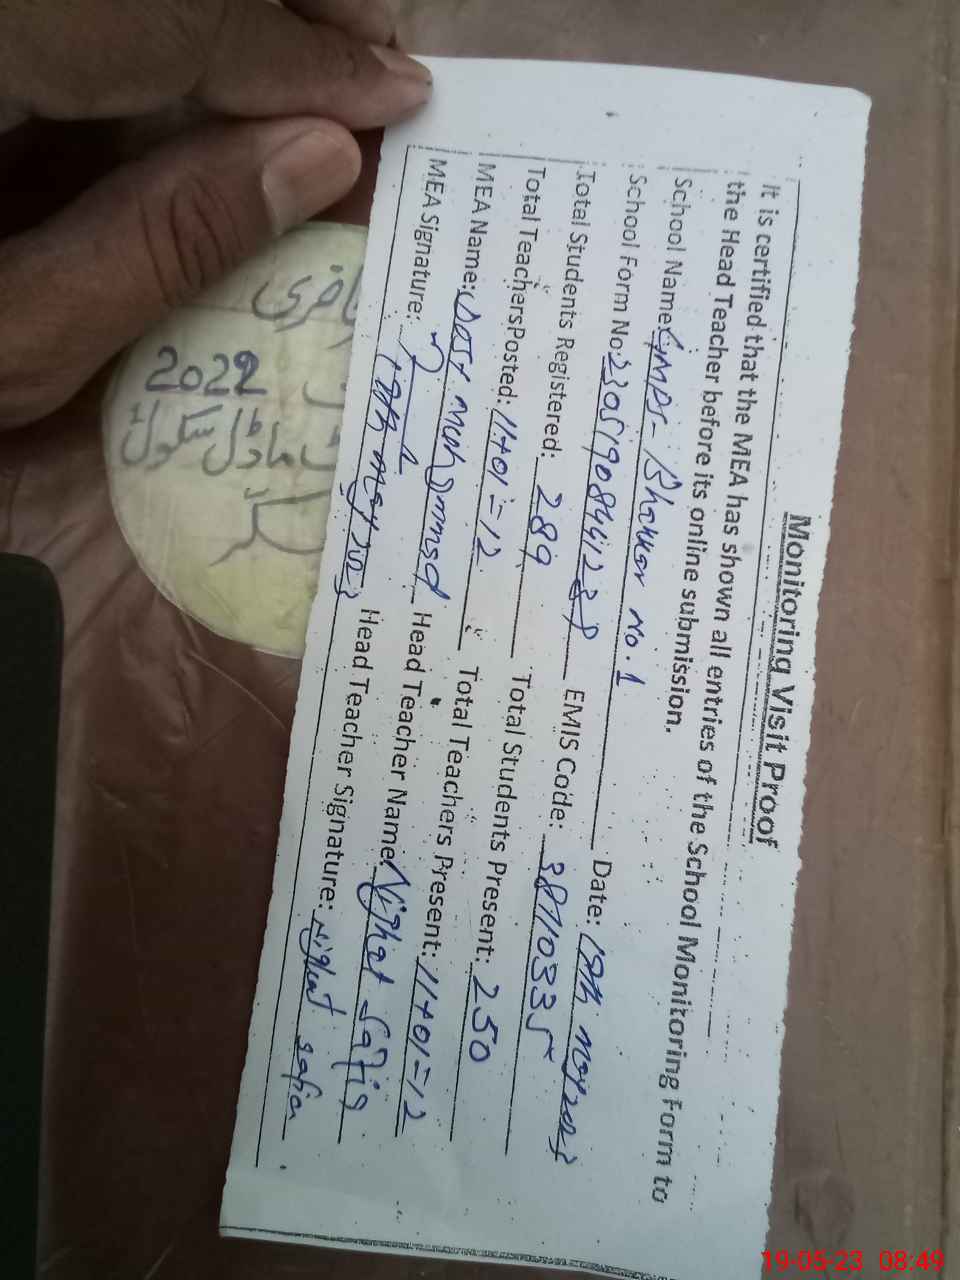 Monitoring Visit Proof
It is certified that the MEA has shown all entries of the School Monitoring Form to
the Head Teacher before its online submission.
School Name: GMPS- Bhakkar No.1 Date: 19th May 2023
School Form No: EMIS Code: 38110335
Total Students Registered: 289 Total Students Present: 250
Total Teachers Posted: 11+01=12 Total Teachers Present: 11+01=12
MEA Name: Muhammad Head Teacher Name: Nighat Safia
MEA Signature: 19th May 2023 Head Teacher Signature: Nighat Safia
2022
ماڈل سکول
19-05-23 08:49